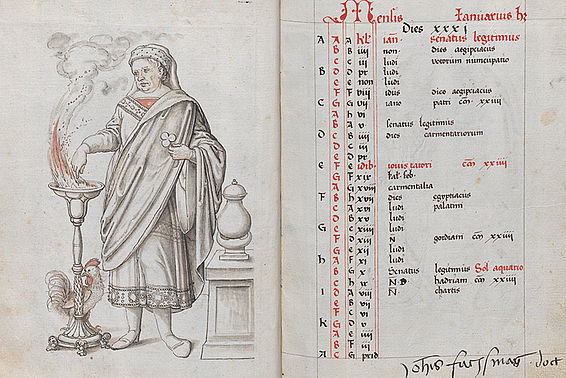 Mensis Ianuarius
Dies XXXI
A A A kl ian. Senatus legitimus
B B iiii non dies aegipciacus
C c iii ludi votorum nuncupatio
B D D pr ludi
E E non ludi
F F viii idus dies aegipciacus
C G G vii iano patri cm̄ xxiiii
A h vi
B A v senatus legitimus
D C B iiii dies carmentariorum
D c iii
E D pr
e F E idib iovis tatori cm̄ xxiiii
G F xix
A G xviii carmentalia
F B h xvii dies egyptiacus
C A xvi ludi palatini
D B xv ludi
G E c xiiii ludi
F D xiii N gordiani cm̄ xxiiii
G E xii ludi
h A F xi ludi
B G x Senatus legitimus Sol aquario
C h ix N.B hadriani cm̄ xxiiii
I D A viii N chartis
E B vii
F c vi
K G D v
A E iiii
B F iii
A C G prid